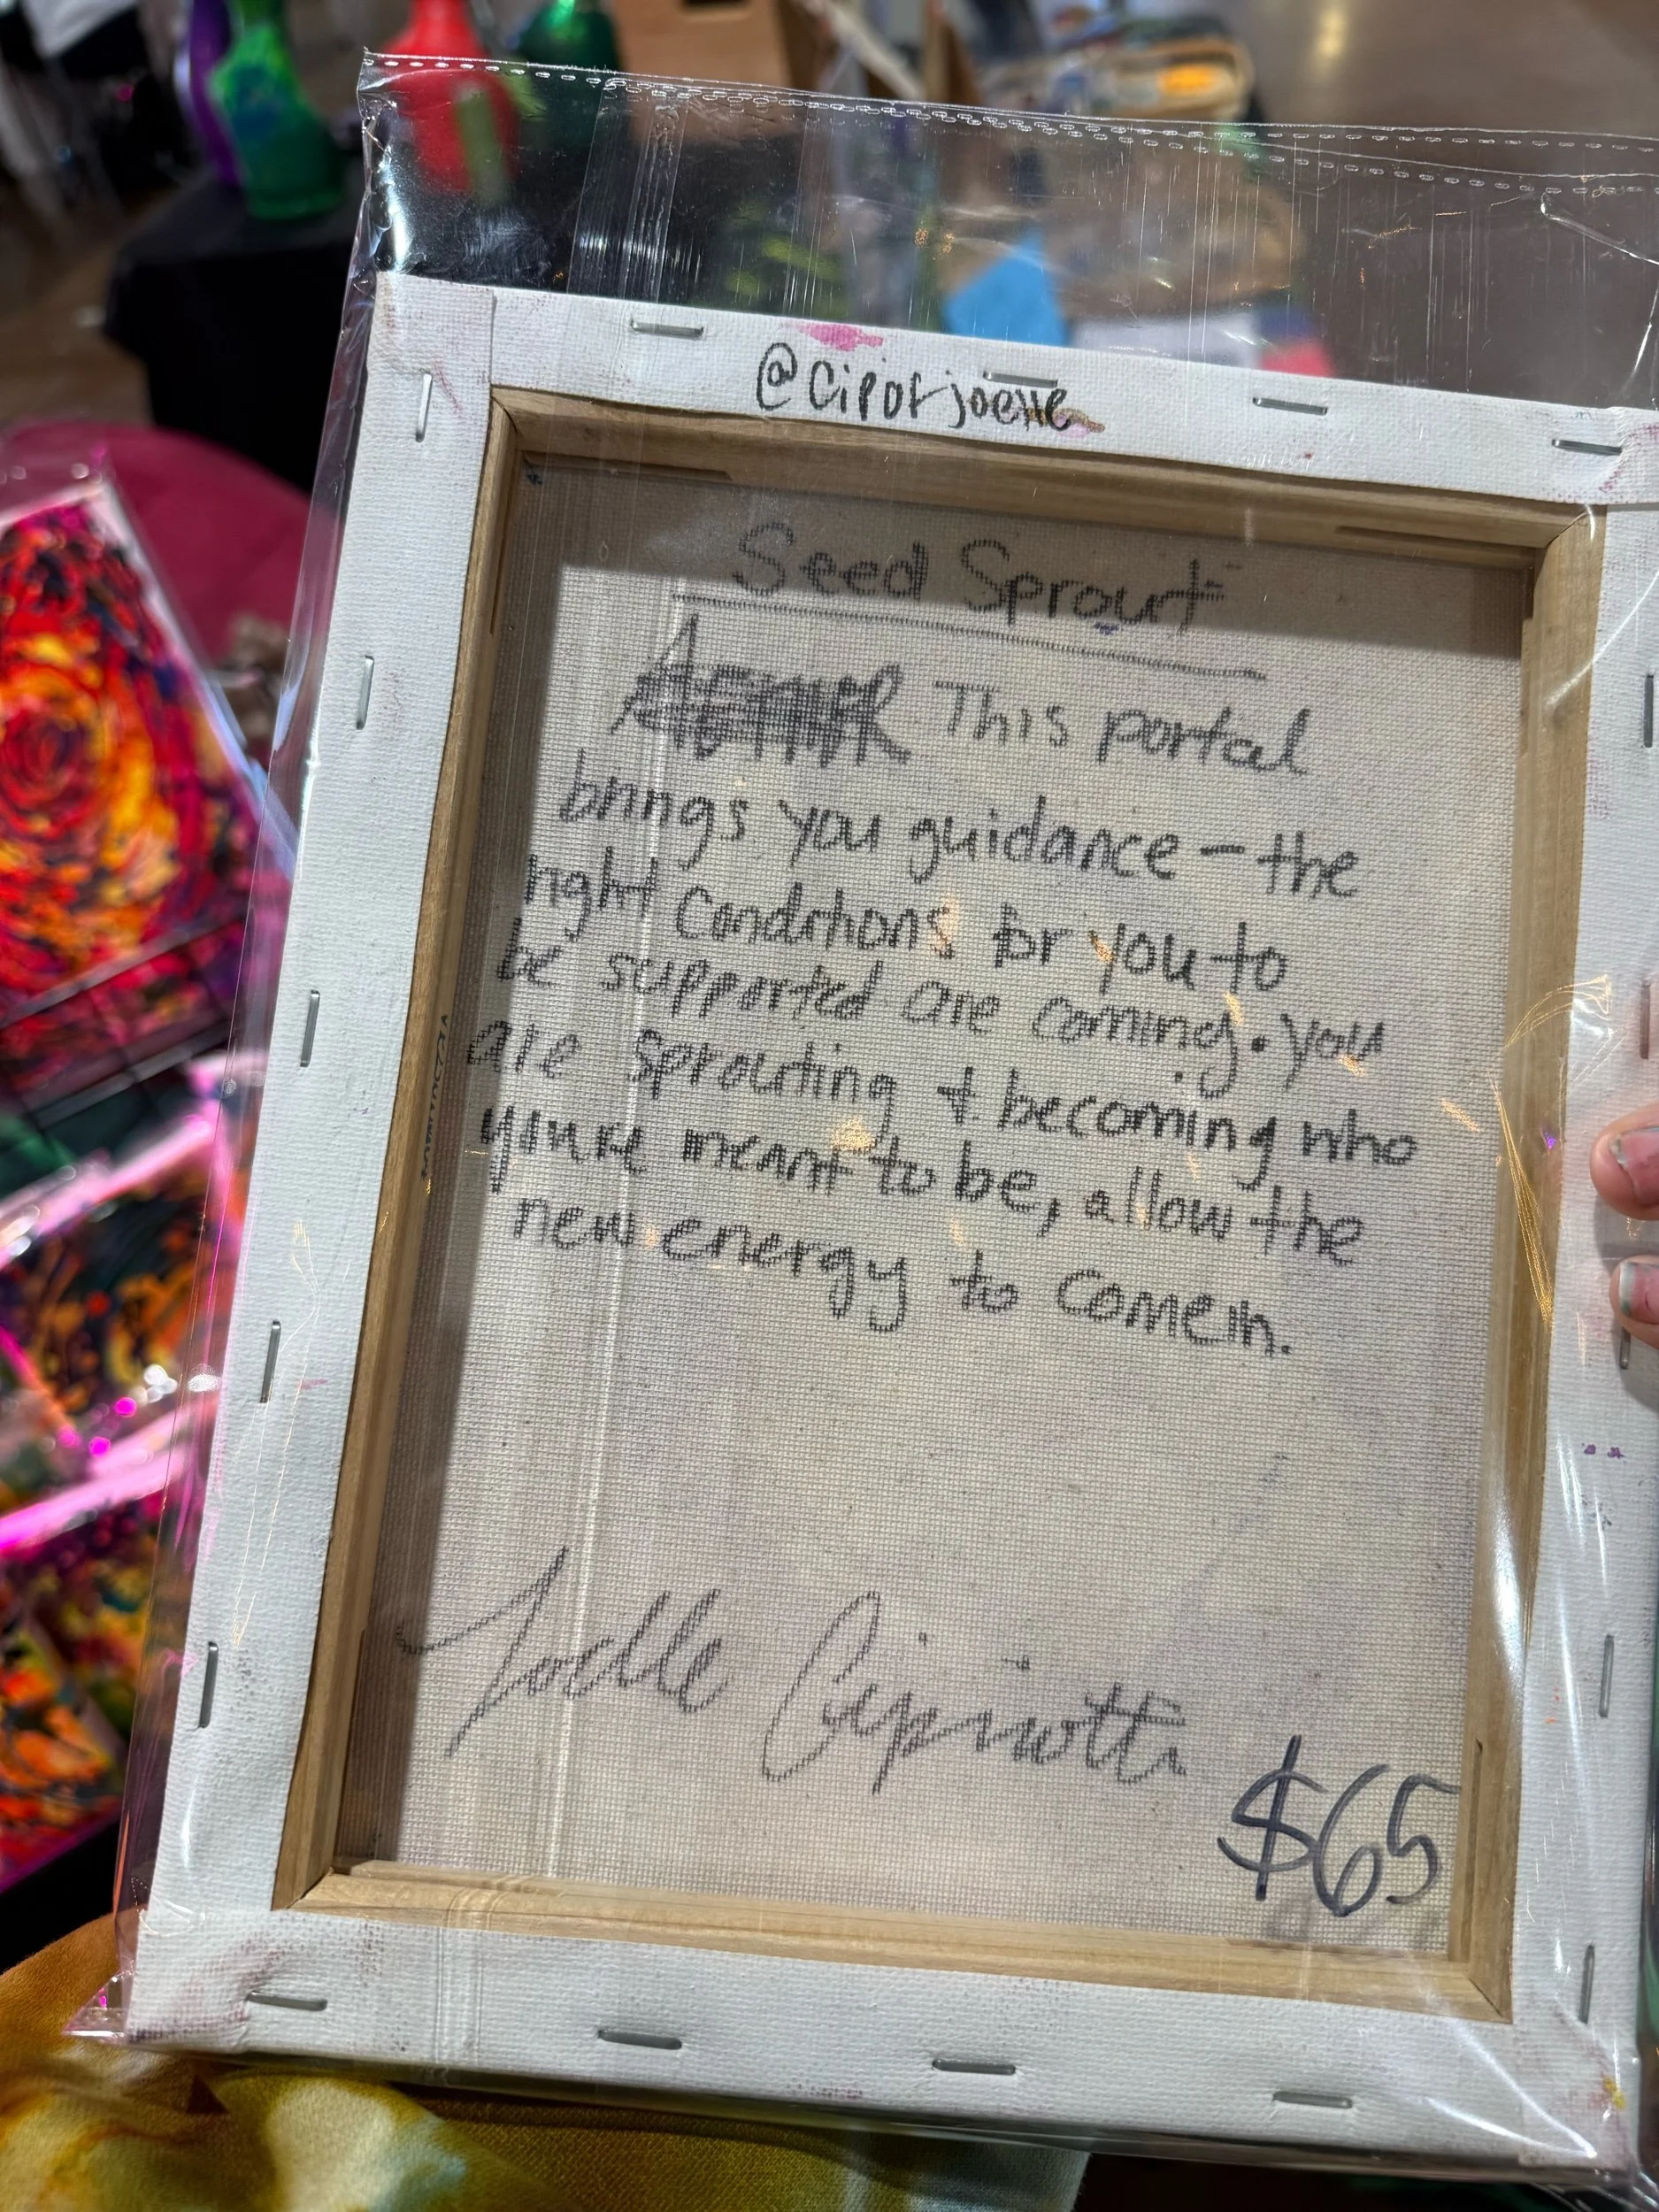 @cipofjoelle
Seed Sprout
This portal
brings you guidance — the
right conditions for you to
be supported are coming. you
are sprouting + becoming who
you're meant to be, allow the
new energy to come in.
Joelle Cipriotti
$65